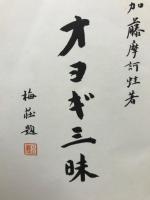 加藤摩訶炷著
オヨギ三昧
梅荘題